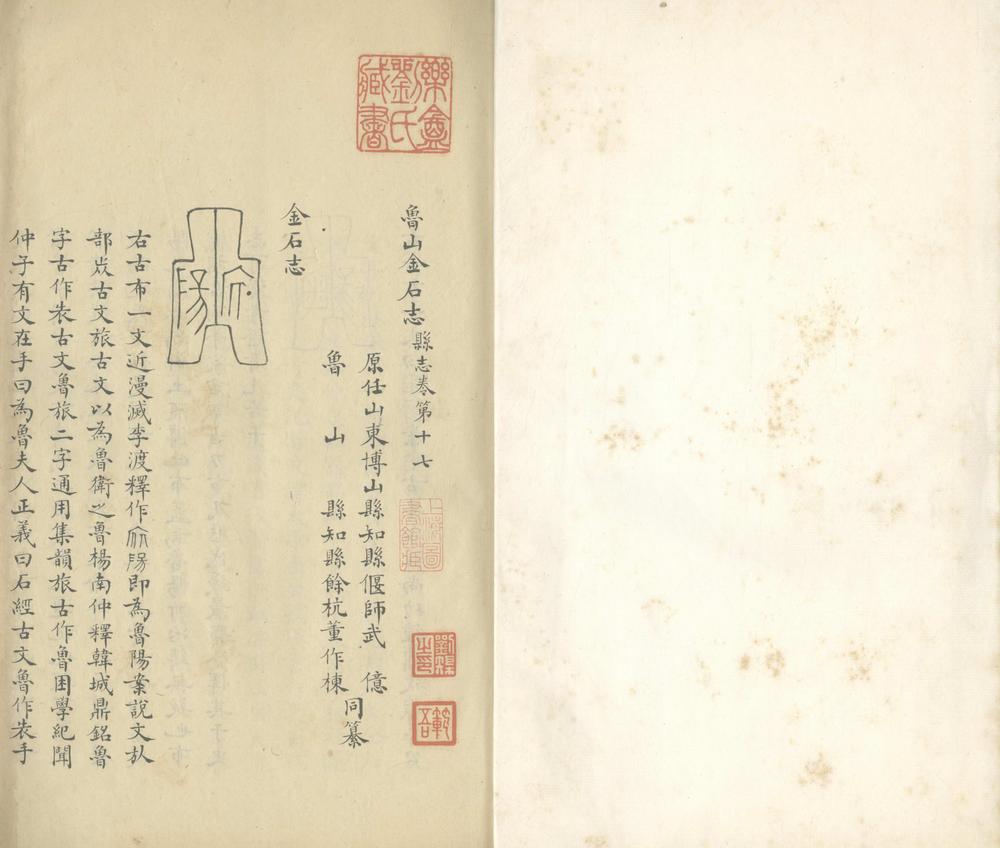 灤龕劉氏藏書
魯山金石志縣志卷第十七
上海圖書館藏
劉
之印
原任山東博山縣知縣偃師武億
魯山縣知縣餘杭董作棟
同纂
金石志
陽
右古布一文近漫滅李渡釋作𣥏陽即為魯陽案說文㫃
部𣥏古文旅古文以為魯衛之魯楊南仲釋韓城鼎銘魯
字古作𣥏古文魯旅二字通用集韻旅古作魯困學紀聞
仲子有文在手曰為魯夫人正義曰石經古文魯作𣥏手